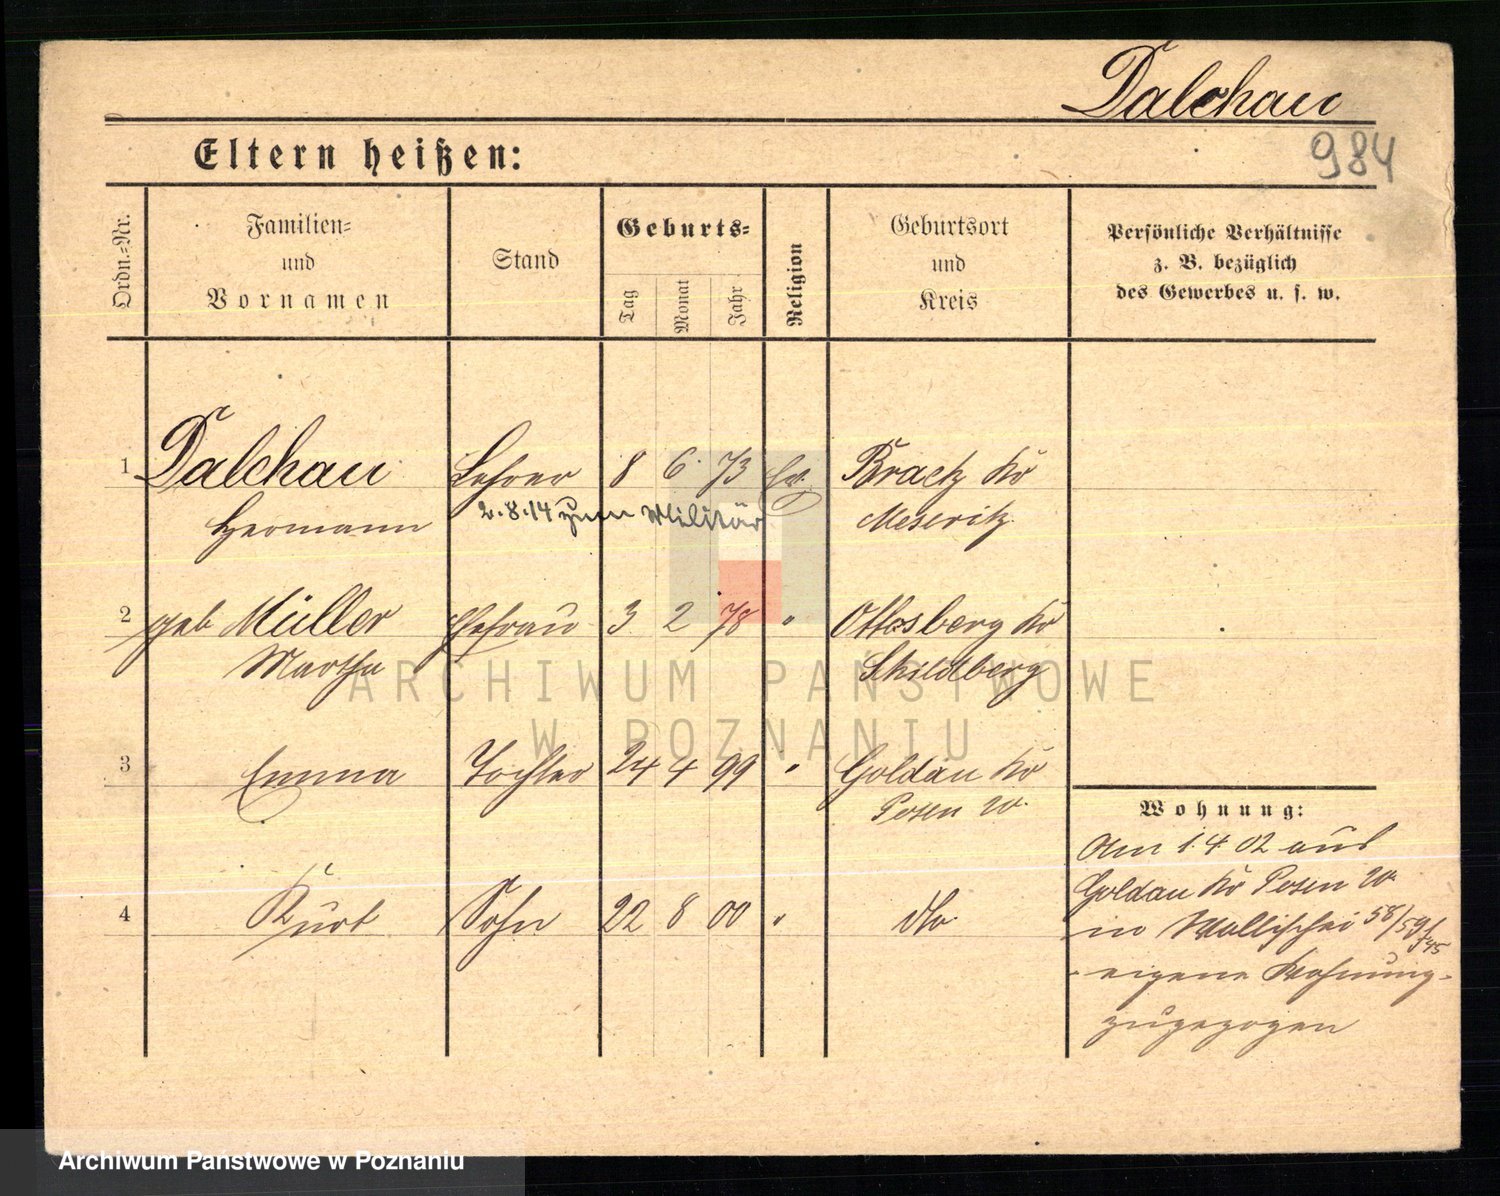 Dalchau
984
Eltern heißen:
Ordn.=Nr.
Familien=
und
Vornamen
Stand
Geburts=
Tag
Monat
Jahr
Religion
Geburtsort
und
Kreis
Persönliche Verhältnisse
z. B. bezüglich
des Gewerbes u. s. w.
1 Dalchau Lehrer 8 6. 73 Ev. Braetz Kr
Hermann 2.8.14 zum Militär Meseritz
2 geb Müller Ehefrau 3 2 78 " Ottosberg Kr
Martha Schildberg
3 Emma Tochter 24 4 99 " Goldau Kr
Posen W.
4 Kurt Sohn 22 8 00 " dto
Wohnung:
Am 1.4.02 aus
Goldau Kr Posen W.
in Wallischei 58/59
eigene Wohnung
zugezogen
ARCHIWUM PAŃSTWOWE
W POZNANIU
Archiwum Państwowe w Poznaniu